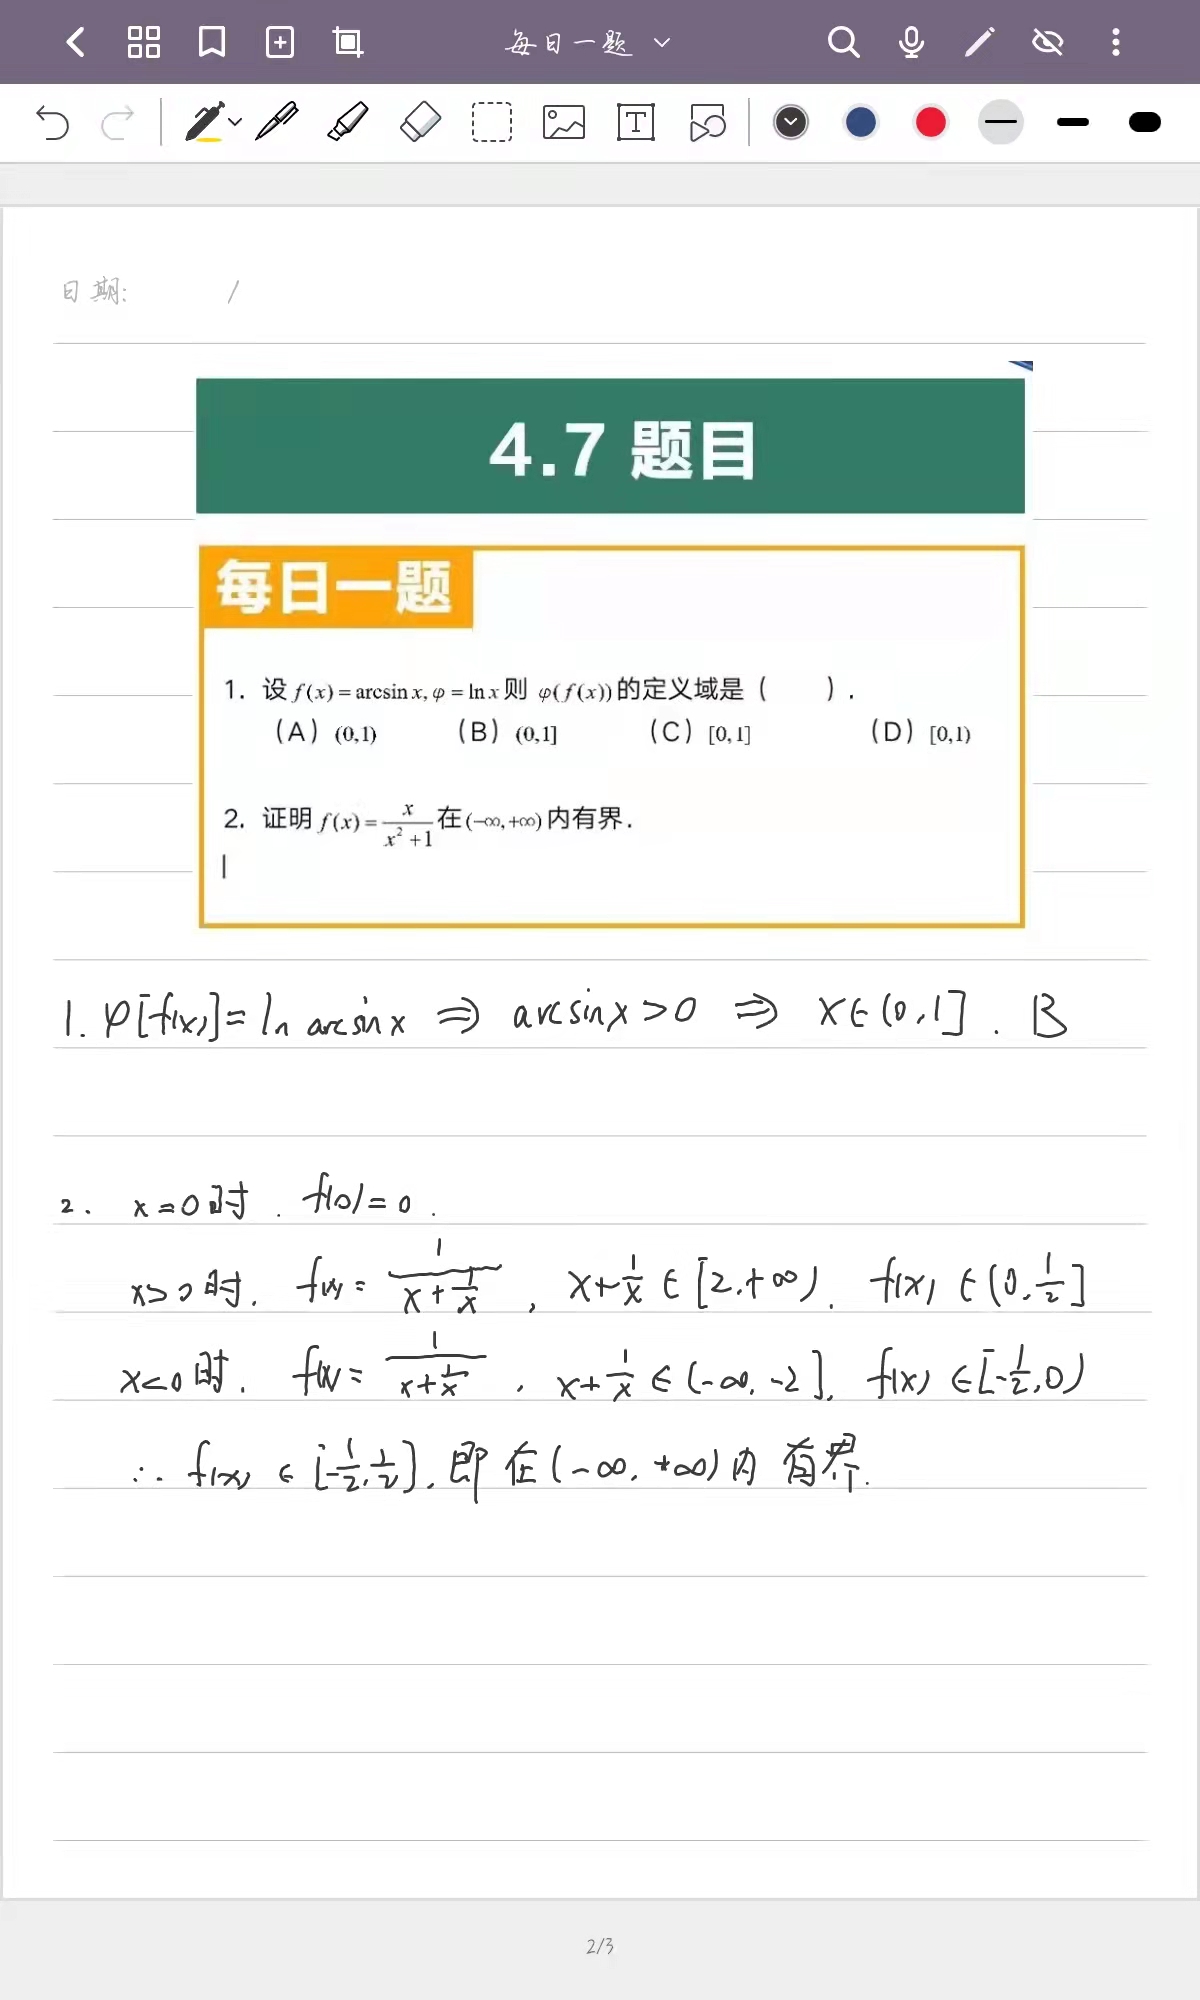 每日一题
日期: /
4.7 题目
每日一题
1. 设 f(x) = arcsin x, φ = ln x 则 φ(f(x)) 的定义域是 ( ).
(A) (0,1) (B) (0,1] (C) [0,1] (D) [0,1)
2. 证明 f(x) = x/(x²+1) 在 (-∞,+∞) 内有界.
1. φ[f(x)] = ln arcsinx ⇒ arcsinx > 0 ⇒ x∈(0,1]. B
2. x=0时. f(0)=0.
x>0时. f(x) = 1/(x+1/x), x+1/x ∈ [2,+∞). f(x) ∈ (0,1/2]
x<0时. f(x) = 1/(x+1/x), x+1/x ∈ (-∞,-2]. f(x) ∈ [-1/2,0)
∴ f(x) ∈ [-1/2,1/2]. 即在(-∞,+∞)内有界.
2/3